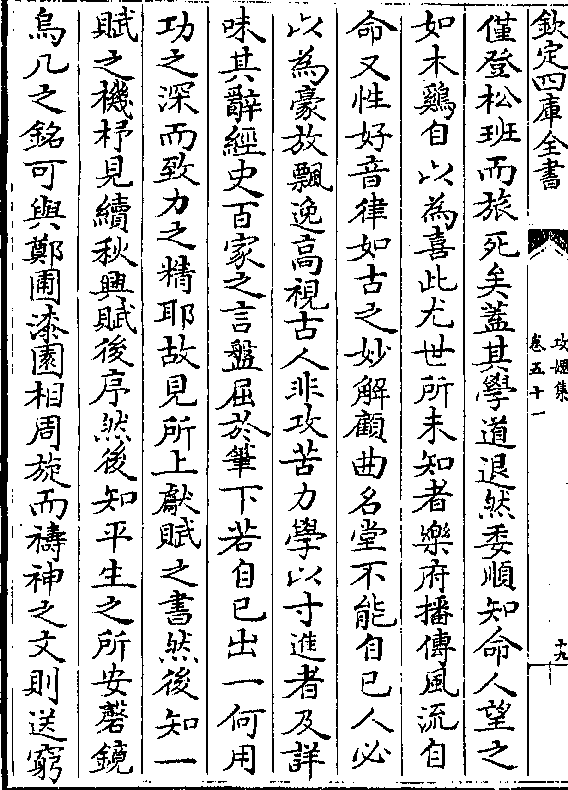 欽定四庫全書
攻媿集
卷五十一
十九
僅登松班而旅死矣蓋其學道退然委順知命人望之
如木鷄自以為喜此尤世所未知者樂府播傳風流自
命又性好音律如古之妙解顧曲名堂不能自已人必
以為豪放飄逸高視古人非攻苦力學以寸進者及詳
味其辭經史百家之言盤屈於筆下若自已出一何用
功之深而致力之精耶故見所上獻賦之書然後知一
賦之機杼見續秋興賦後序然後知平生之所安磬鏡
烏几之銘可與鄭圃漆園相周旋而禱神之文則送窮